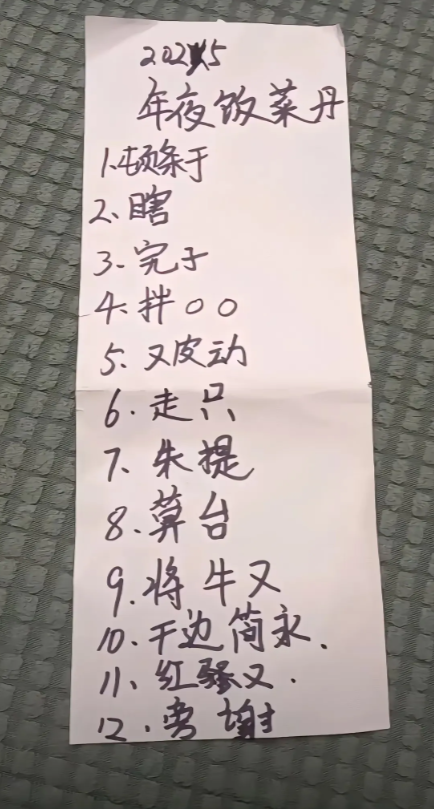 2025
年夜饭菜丹
1.顿条于
2、瞎
3.完子
4.拌○○
5.又皮动
6.走只
7、朱提
8.算台
9.将牛又
10.干边简永.
11、红骚又.
12.旁